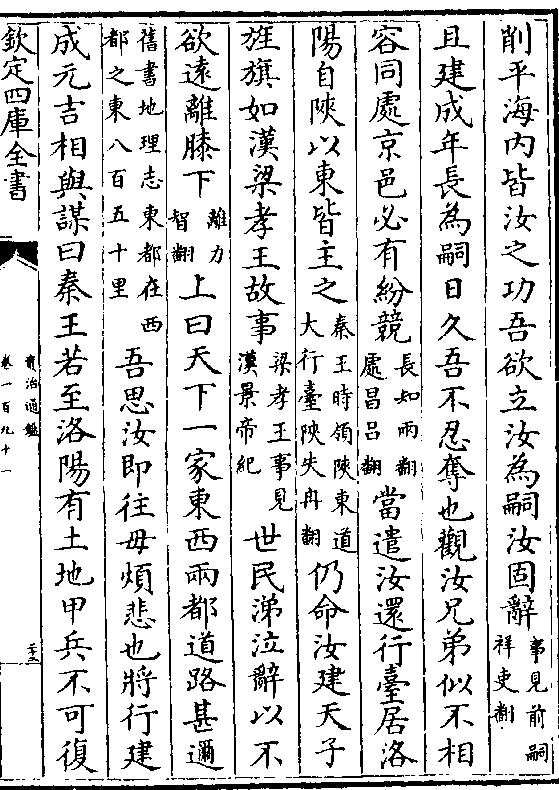 削平海內皆汝之功吾欲立汝為嗣汝固辭事見前嗣祥吏翻
且建成年長為嗣日久吾不忍奪也觀汝兄弟似不相
容同處京邑必有紛競長知兩翻處昌呂翻當遣汝還行臺居洛
陽自陜以東皆主之秦王時領陜東道大行臺陜失冉翻仍命汝建天子
旌旗如漢梁孝王故事梁孝王事見漢景帝紀世民涕泣辭以不
欲遠離膝下離力智翻上曰天下一家東西兩都道路甚邇
舊書地理志東都在西都之東八百五十里吾思汝即往毋煩悲也將行建
成元吉相與謀曰秦王若至洛陽有土地甲兵不可復
欽定四庫全書
資治通鑑
卷一百九十一